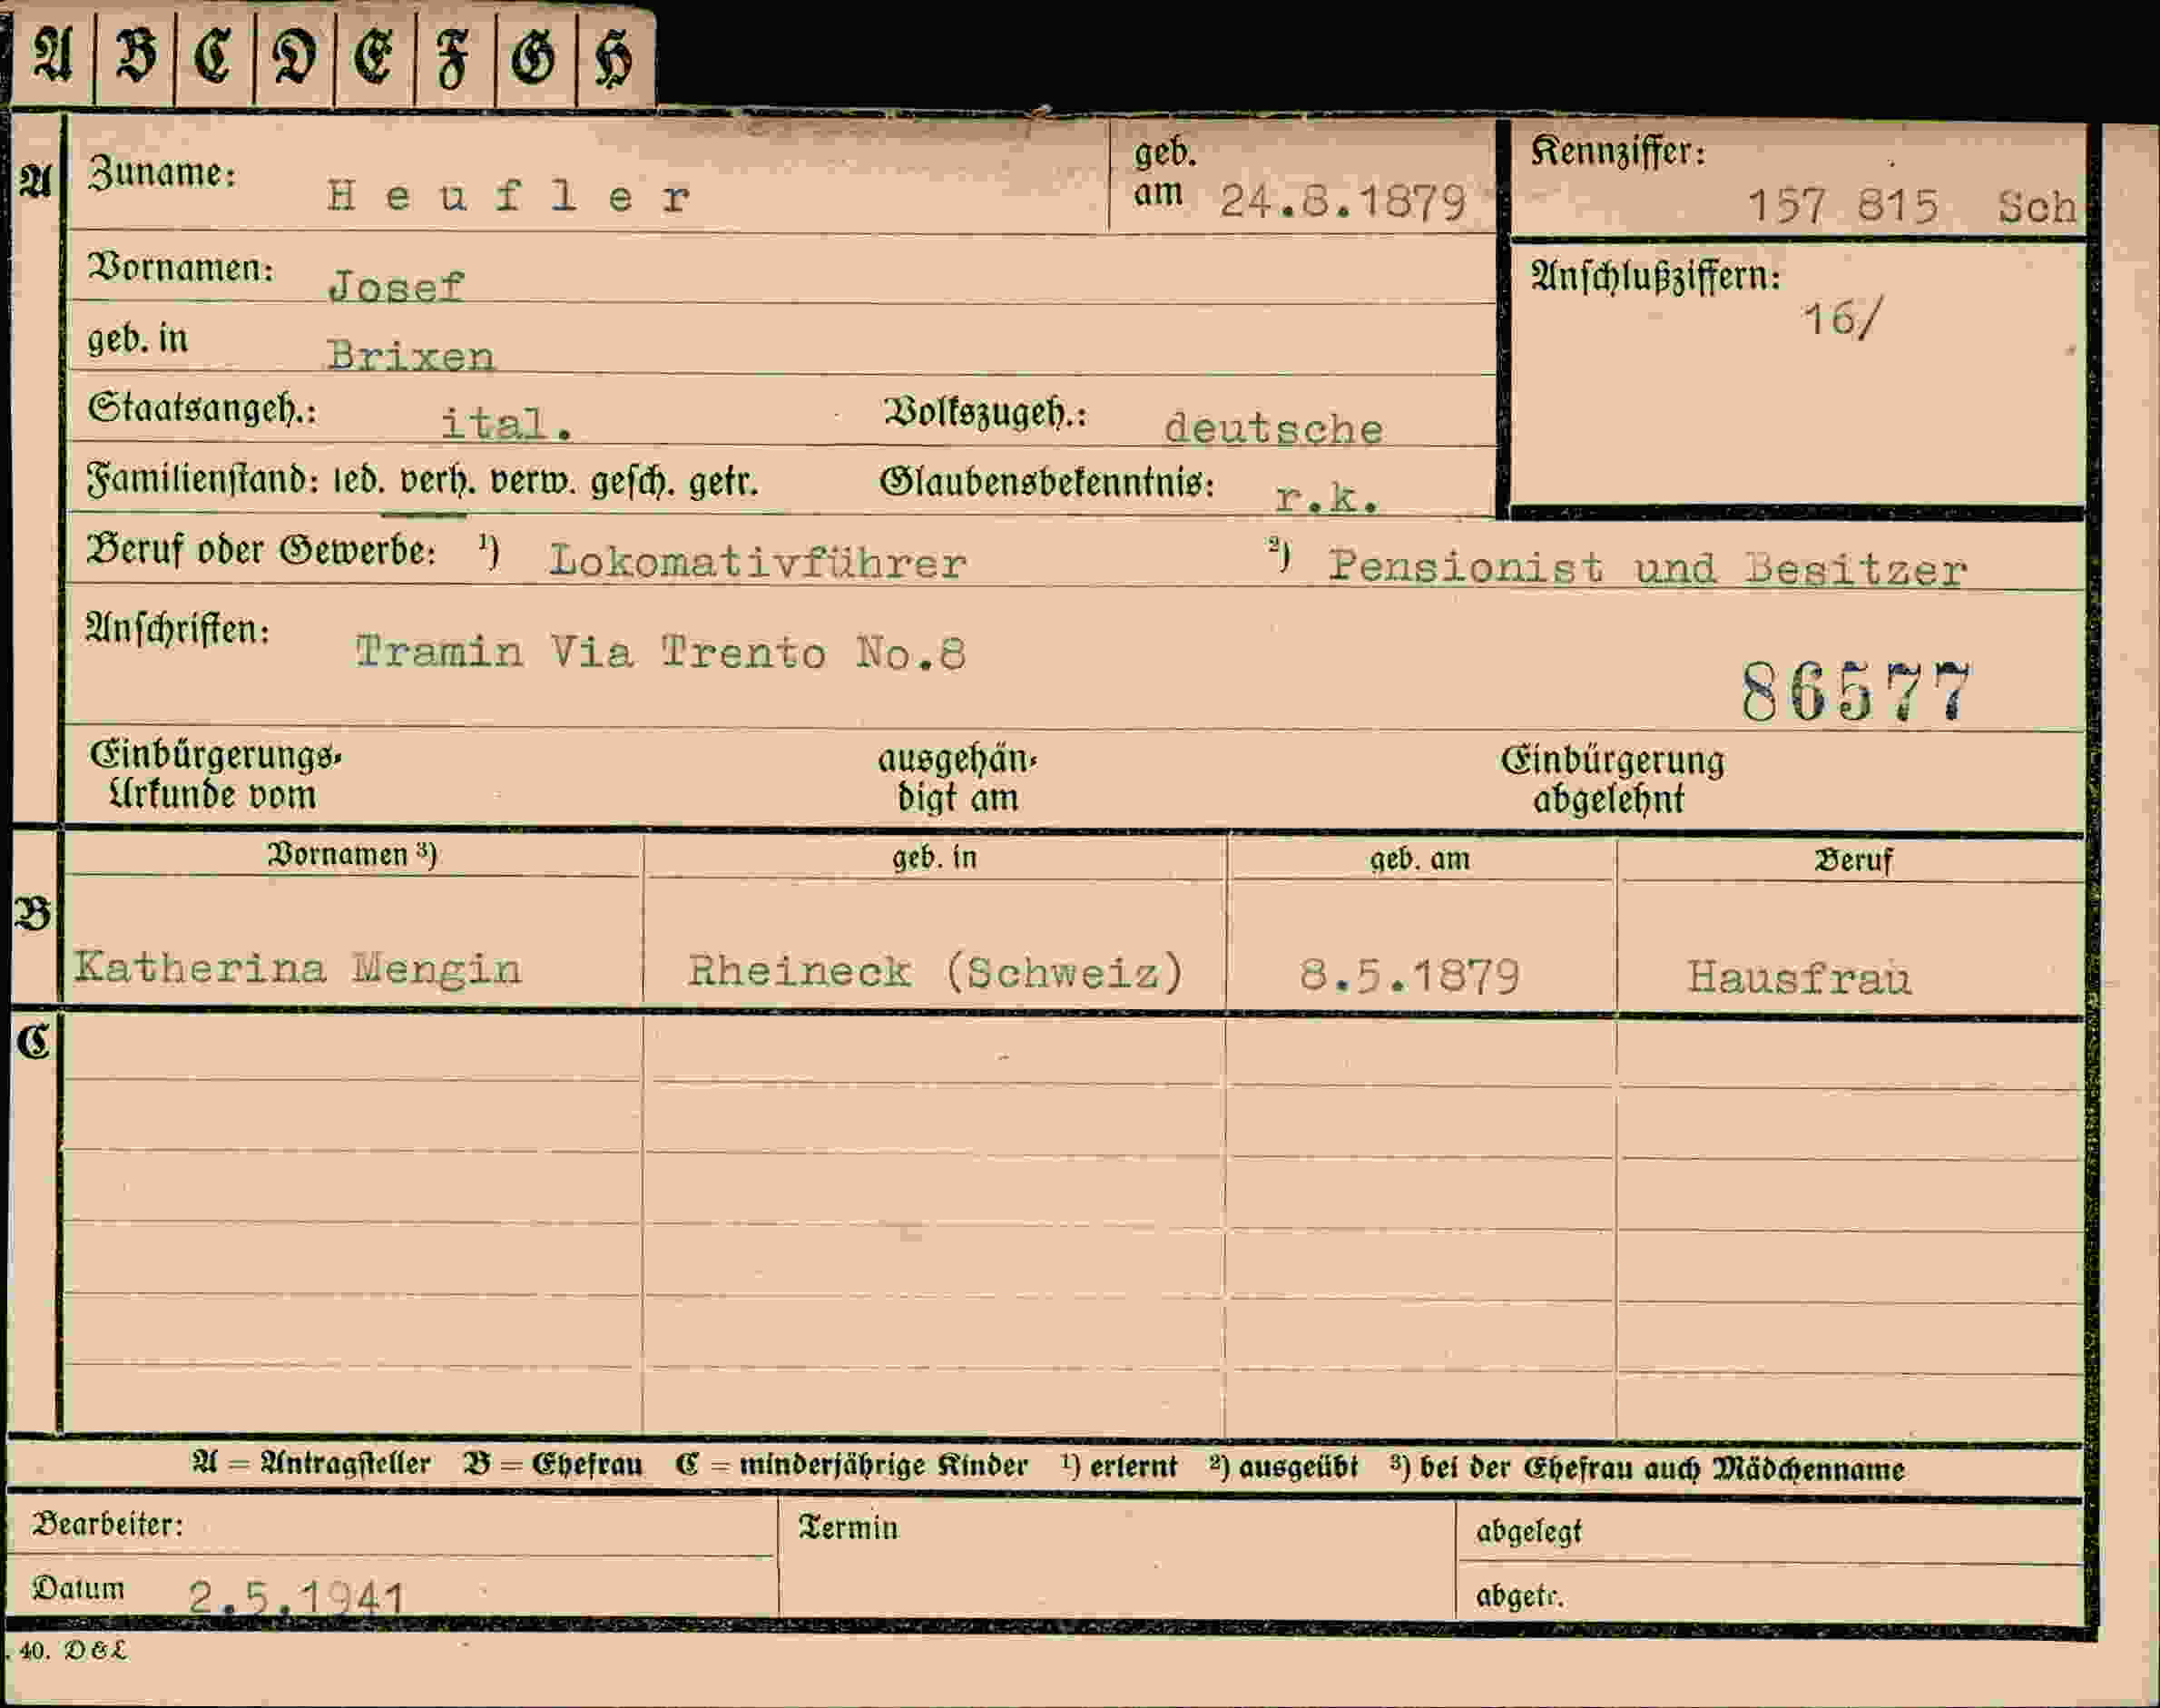 A B C D E F G H
A Zuname: Heufler geb. am 24.8.1879 Kennziffer: 157 815 Sch
Vornamen: Josef Anschlußziffern: 16/
geb. in Brixen
Staatsangeh.: ital. Volkszugeh.: deutsche
Familienstand: led. verh. verw. gesch. getr. Glaubensbekenntnis: r.k.
Beruf oder Gewerbe: ¹) Lokomativführer ²) Pensionist und Besitzer
Anschriften: Tramin Via Trento No.8
86577
Einbürgerungs- ausgehän- Einbürgerung
Urkunde vom digt am abgelehnt
Vornamen ³) geb. in geb. am Beruf
B
Katherina Mengin Rheineck (Schweiz) 8.5.1879 Hausfrau
C
A = Antragsteller B = Ehefrau C = minderjährige Kinder ¹) erlernt ²) ausgeübt ³) bei der Ehefrau auch Mädchenname
Bearbeiter: Termin abgelegt
Datum 2.5.1941 abgetr.
. 40. D & L